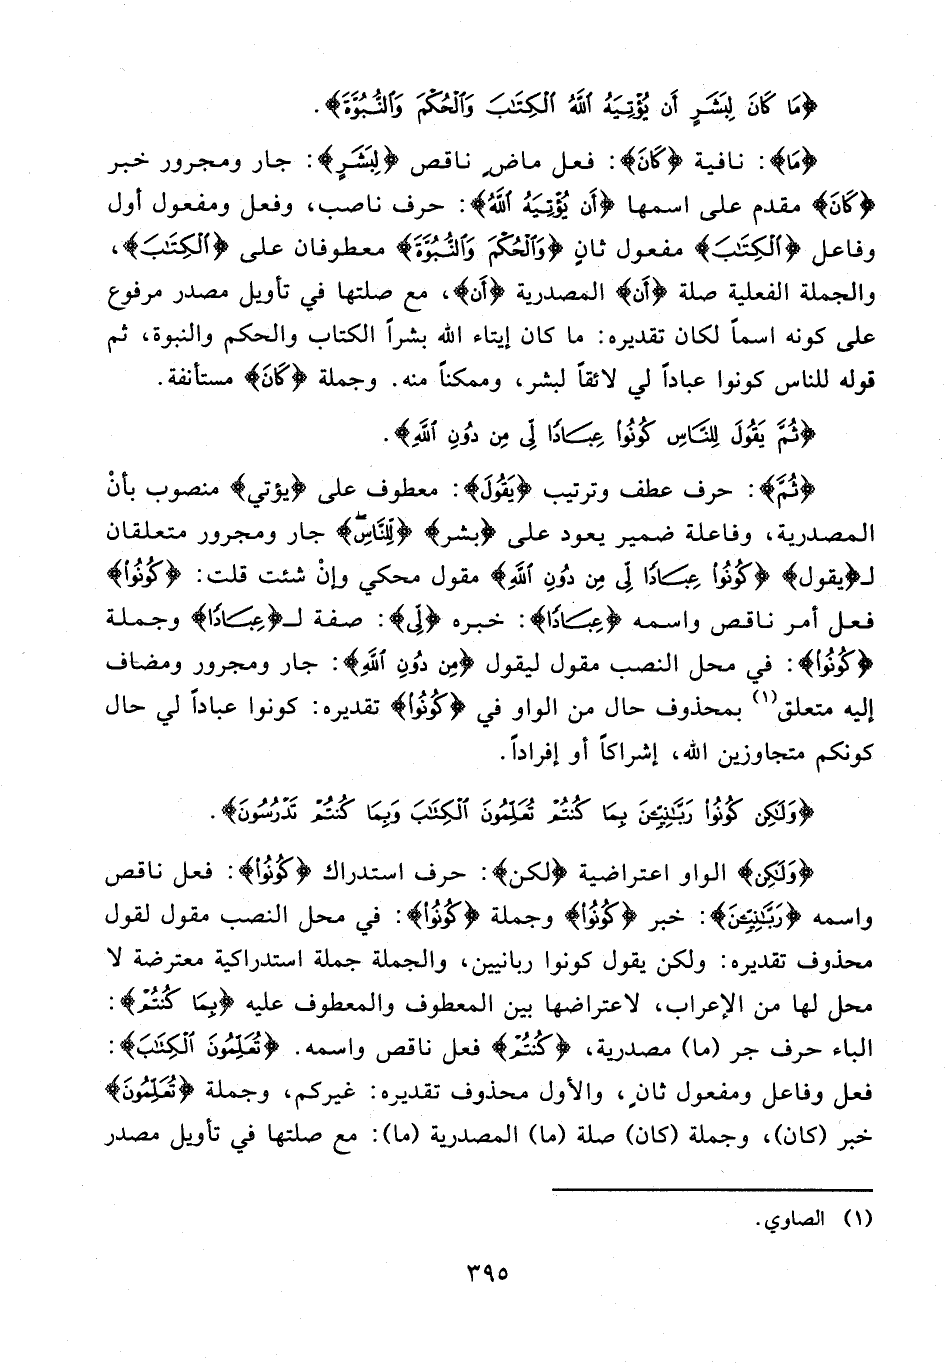 ﴿مَا كَانَ لِبَشَرٍ أَن يُؤْتِيَهُ ٱللَّهُ ٱلْكِتَٰبَ وَٱلْحُكْمَ وَٱلنُّبُوَّةَ﴾.
﴿مَا﴾: نافية ﴿كَانَ﴾: فعل ماضٍ ناقص ﴿لِبَشَرٍ﴾: جار ومجرور خبر
﴿كَانَ﴾ مقدم على اسمها ﴿أَن يُؤْتِيَهُ ٱللَّهُ﴾: حرف ناصب، وفعل ومفعول أول
وفاعل ﴿ٱلْكِتَٰبَ﴾ مفعول ثانٍ ﴿وَٱلْحُكْمَ وَٱلنُّبُوَّةَ﴾ معطوفان على ﴿ٱلْكِتَٰبَ﴾،
والجملة الفعلية صلة ﴿أَن﴾ المصدرية ﴿أَن﴾، مع صلتها في تأويل مصدر مرفوع
على كونه اسماً لكان تقديره: ما كان إيتاء الله بشراً الكتاب والحكم والنبوة، ثم
قوله للناس كونوا عباداً لي لائقاً لبشر، وممكناً منه. وجملة ﴿كَانَ﴾ مستأنفة.
﴿ثُمَّ يَقُولَ لِلنَّاسِ كُونُوا۟ عِبَادًا لِّى مِن دُونِ ٱللَّهِ﴾.
﴿ثُمَّ﴾: حرف عطف وترتيب ﴿يَقُولَ﴾: معطوف على ﴿يؤتي﴾ منصوب بأنْ
المصدرية، وفاعلة ضمير يعود على ﴿بشر﴾ ﴿لِلنَّاسِ﴾ جار ومجرور متعلقان
لـ﴿يقول﴾ ﴿كُونُوا۟ عِبَادًا لِّى مِن دُونِ ٱللَّهِ﴾ مقول محكي وإنْ شئت قلت: ﴿كُونُوا۟﴾
فعل أمر ناقص واسمه ﴿عِبَادًا﴾: خبره ﴿لِّى﴾: صفة لـ﴿عِبَادًا﴾ وجملة
﴿كُونُوا۟﴾: في محل النصب مقول ليقول ﴿مِن دُونِ ٱللَّهِ﴾: جار ومجرور ومضاف
إليه متعلق(١) بمحذوف حال من الواو في ﴿كُونُوا۟﴾ تقديره: كونوا عباداً لي حال
كونكم متجاوزين الله، إشراكاً أو إفراداً.
﴿وَلَٰكِن كُونُوا۟ رَبَّٰنِيِّـۧنَ بِمَا كُنتُمْ تُعَلِّمُونَ ٱلْكِتَٰبَ وَبِمَا كُنتُمْ تَدْرُسُونَ﴾.
﴿وَلَٰكِن﴾ الواو اعتراضية ﴿لكن﴾: حرف استدراك ﴿كُونُوا۟﴾: فعل ناقص
واسمه ﴿رَبَّٰنِيِّـۧنَ﴾: خبر ﴿كُونُوا۟﴾ وجملة ﴿كُونُوا۟﴾: في محل النصب مقول لقول
محذوف تقديره: ولكن يقول كونوا ربانيين، والجملة جملة استدراكية معترضة لا
محل لها من الإعراب، لاعتراضها بين المعطوف والمعطوف عليه ﴿بِمَا كُنتُمْ﴾:
الباء حرف جر (ما) مصدرية، ﴿كُنتُمْ﴾ فعل ناقص واسمه. ﴿تُعَلِّمُونَ ٱلْكِتَٰبَ﴾:
فعل وفاعل ومفعول ثانٍ، والأول محذوف تقديره: غيركم، وجملة ﴿تُعَلِّمُونَ﴾
خبر (كان)، وجملة (كان) صلة (ما) المصدرية (ما): مع صلتها في تأويل مصدر
(١) الصاوي.
٣٩٥